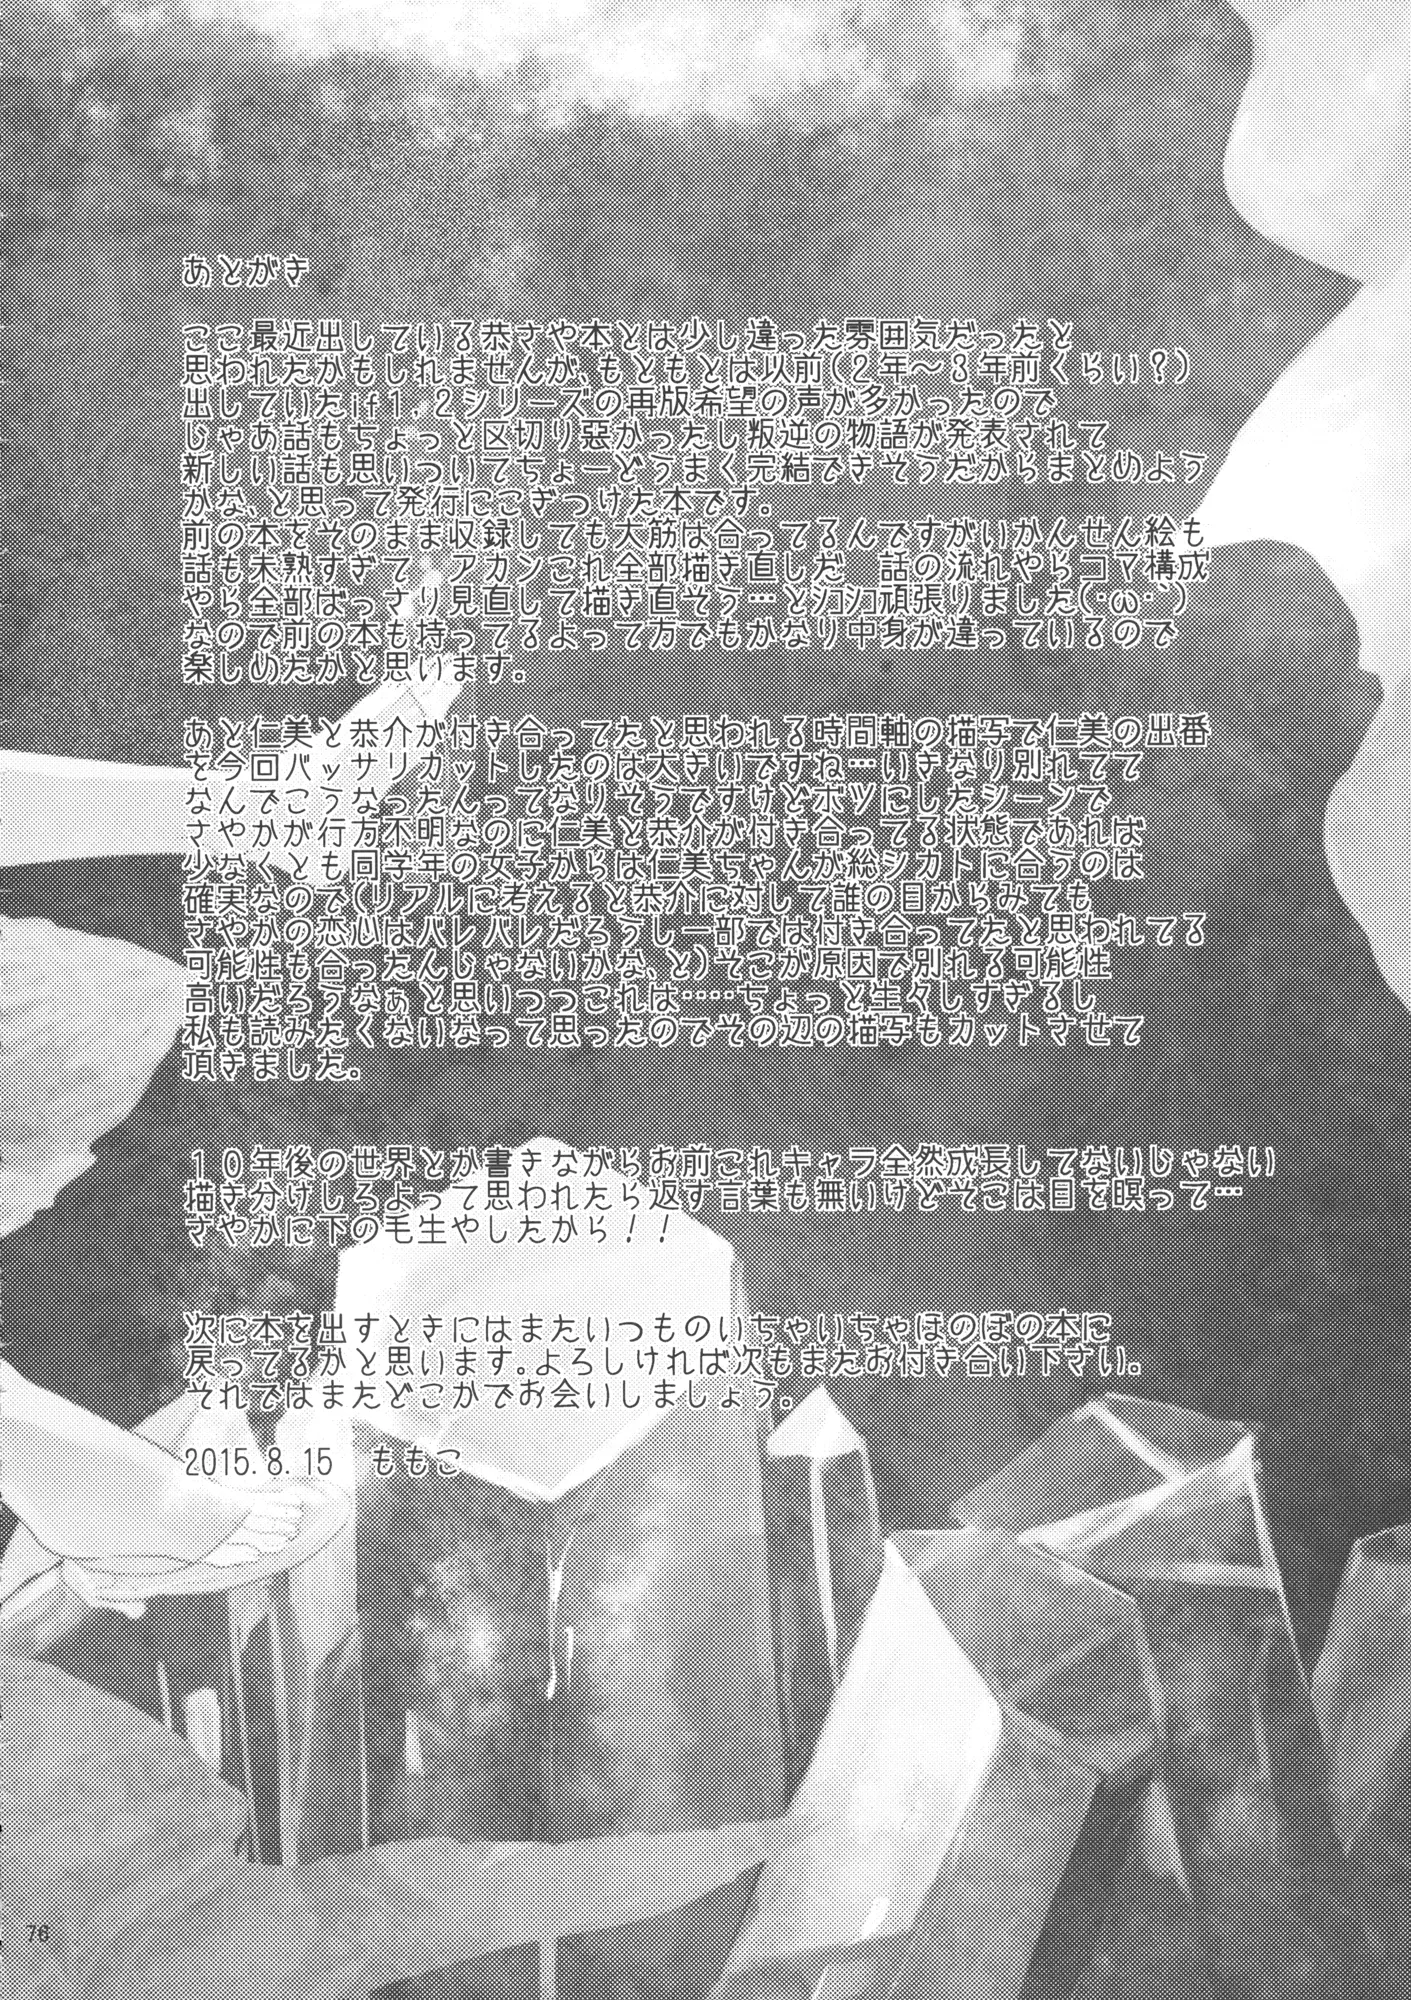 あとがき
ここ最近出している恭さや本とは少し違った雰囲気だったと
思われたかもしれませんが、もともとは以前(2年～3年前くらい?)
出していたif1.2シリーズの再版希望の声が多かったので
じゃあ話もちょっと区切り悪かったし叛逆の物語が発表されて
新しい話も思いついてちょーどうまく完結できそうだからまとめよう
かな、と思って発行にこぎつけた本です。
前の本をそのまま収録しても大筋は合ってるんですがいかんせん絵も
話も未熟すぎて、アカンこれ全部描き直しだ 話の流れやらコマ構成
やら全部ばっさり見直して描き直そう…とシコシコ頑張りました(´･ω･`)
なので前の本も持ってるよって方でもかなり中身が違っているので
楽しめたかと思います。
あと仁美と恭介が付き合ってたと思われる時間軸の描写で仁美の出番
を今回バッサリカットしたのは大きいですね…いきなり別れてて
なんでこうなったんってなりそうですけどボツにしたシーンで
さやかが行方不明なのに仁美と恭介が付き合ってる状態であれば
少なくとも同学年の女子からは仁美ちゃんが総シカトに合うのは
確実なので(リアルに考えると恭介に対して誰の目からみても
さやかの恋心はバレバレだろうし一部では付き合ってたと思われてる
可能性も合ったんじゃないかな、と)そこが原因で別れる可能性
高いだろうなぁと思いつつこれは……ちょっと生々しすぎるし
私も読みたくないなって思ったのでその辺の描写もカットさせて
頂きました。
10年後の世界とか書きながらお前これキャラ全然成長してないじゃない
描き分けしろよって思われたら返す言葉も無いけどそこは目を瞑って…
さやかに下の毛生やしたから!!
次に本を出すときにはまたいつものいちゃいちゃほのぼの本に
戻ってるかと思います。よろしければ次もまたお付き合い下さい。
それではまたどこかでお会いしましょう。
2015.8.15 ももこ
76